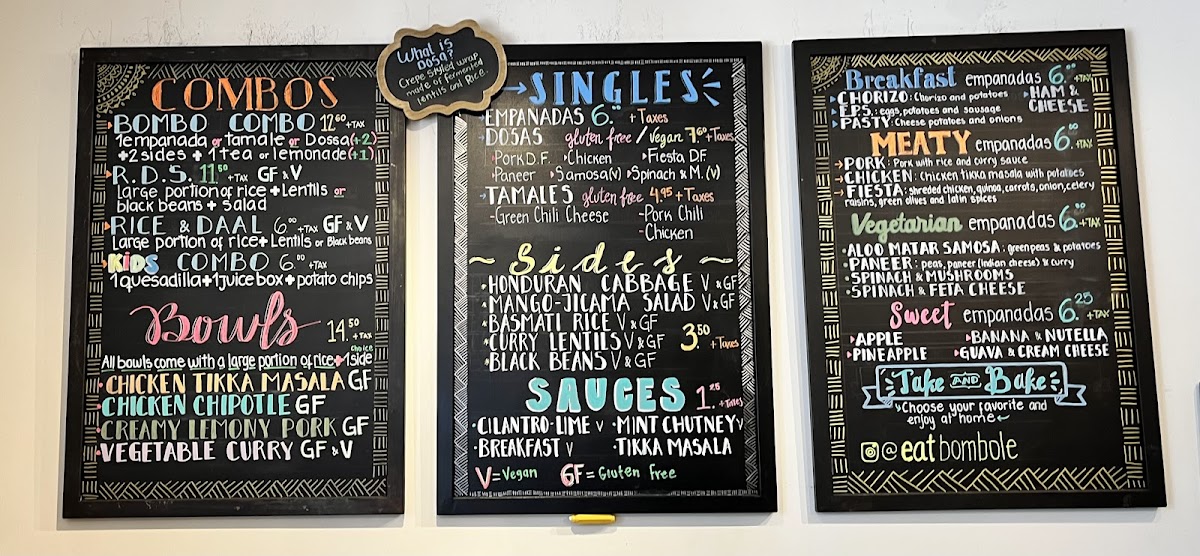 What is
Dosa?
Crepe styled wrap
made of fermented
lentils and Rice..
COMBOS
BOMBO COMBO 12.60 +TAX
1empanada or tamale or Dossa(+2)
+2 sides +1 tea or lemonade(+1)
R.D.S. 11.50 +TAX GF & V
large portion of rice + Lentils or
black beans + salad
RICE & DAAL 6.00 +TAX GF & V
Large portion of rice + Lentils or Black beans
KIDS COMBO 6.00 +TAX
1quesadilla + 1juice box + potato chips
Bowls 14.50 +TAX
choice
All bowls come with a large portion of rice + 1side
CHICKEN TIKKA MASALA GF
CHICKEN CHIPOTLE GF
CREAMY LEMONY PORK GF
VEGETABLE CURRY GF & V
SINGLES
EMPANADAS 6. + Taxes
DOSAS gluten free / Vegan 7.60 + Taxes
Pork D.F. Chicken Fiesta D.F
Paneer Samosa(v) Spinach & M.(v)
TAMALES gluten free 4.95 + Taxes
-Green Chili Cheese -Pork Chili
-Chicken
~ Sides ~
HONDURAN CABBAGE V & GF
MANGO-JICAMA SALAD V & GF
BASMATI RICE V & GF
CURRY LENTILS V & GF 3.50 + Taxes
BLACK BEANS V & GF
SAUCES 1.25 + Taxes
CILANTRO-LIME V MINT CHUTNEY V
BREAKFAST V TIKKA MASALA
V = Vegan GF = Gluten Free
Breakfast empanadas 6. +TAX
CHORIZO: Chorizo and potatoes HAM &
E.P.S.: eggs, potatoes and sausage CHEESE
PASTY: Cheese potatoes and onions
MEATY empanadas 6.00 +TAX
PORK: Pork with rice and curry sauce
CHICKEN: Chicken tikka masala with potatoes
FIESTA: shreded chicken, quinoa, carrots, onion, celery
raisins, green olives and latin spices
Vegetarian empanadas 6. +TAX
ALOO MATAR SAMOSA: green peas & potatoes
PANEER: peas, paneer (indian cheese) & curry
SPINACH & MUSHROOMS
SPINACH & FETA CHEESE
Sweet empanadas 6.25 +TAX
APPLE BANANA & NUTELLA
PINEAPPLE GUAVA & CREAM CHEESE
Take AND Bake
Choose your favorite and
enjoy at home
@eatbombole